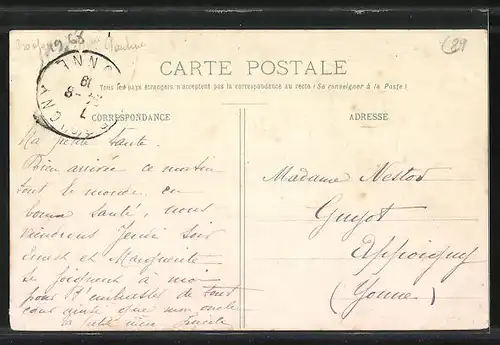 1968
(89
CARTE POSTALE
Tous les pays étrangers n'acceptent pas la correspondance au recto (Se renseigner à la Poste)
CORRESPONDANCE
Ma petite tante
Bien arrivée ce matin
tout le monde en
bonne santé, nous
viendrons Jeudi soir
Ernest et Marguerite
se joignent à moi
pour t'embrasser de tout
cœur ainsi que mon oncle
ta petite nièce
ADRESSE
Madame Nestor
Guyot
Appoigny
(Yonne)